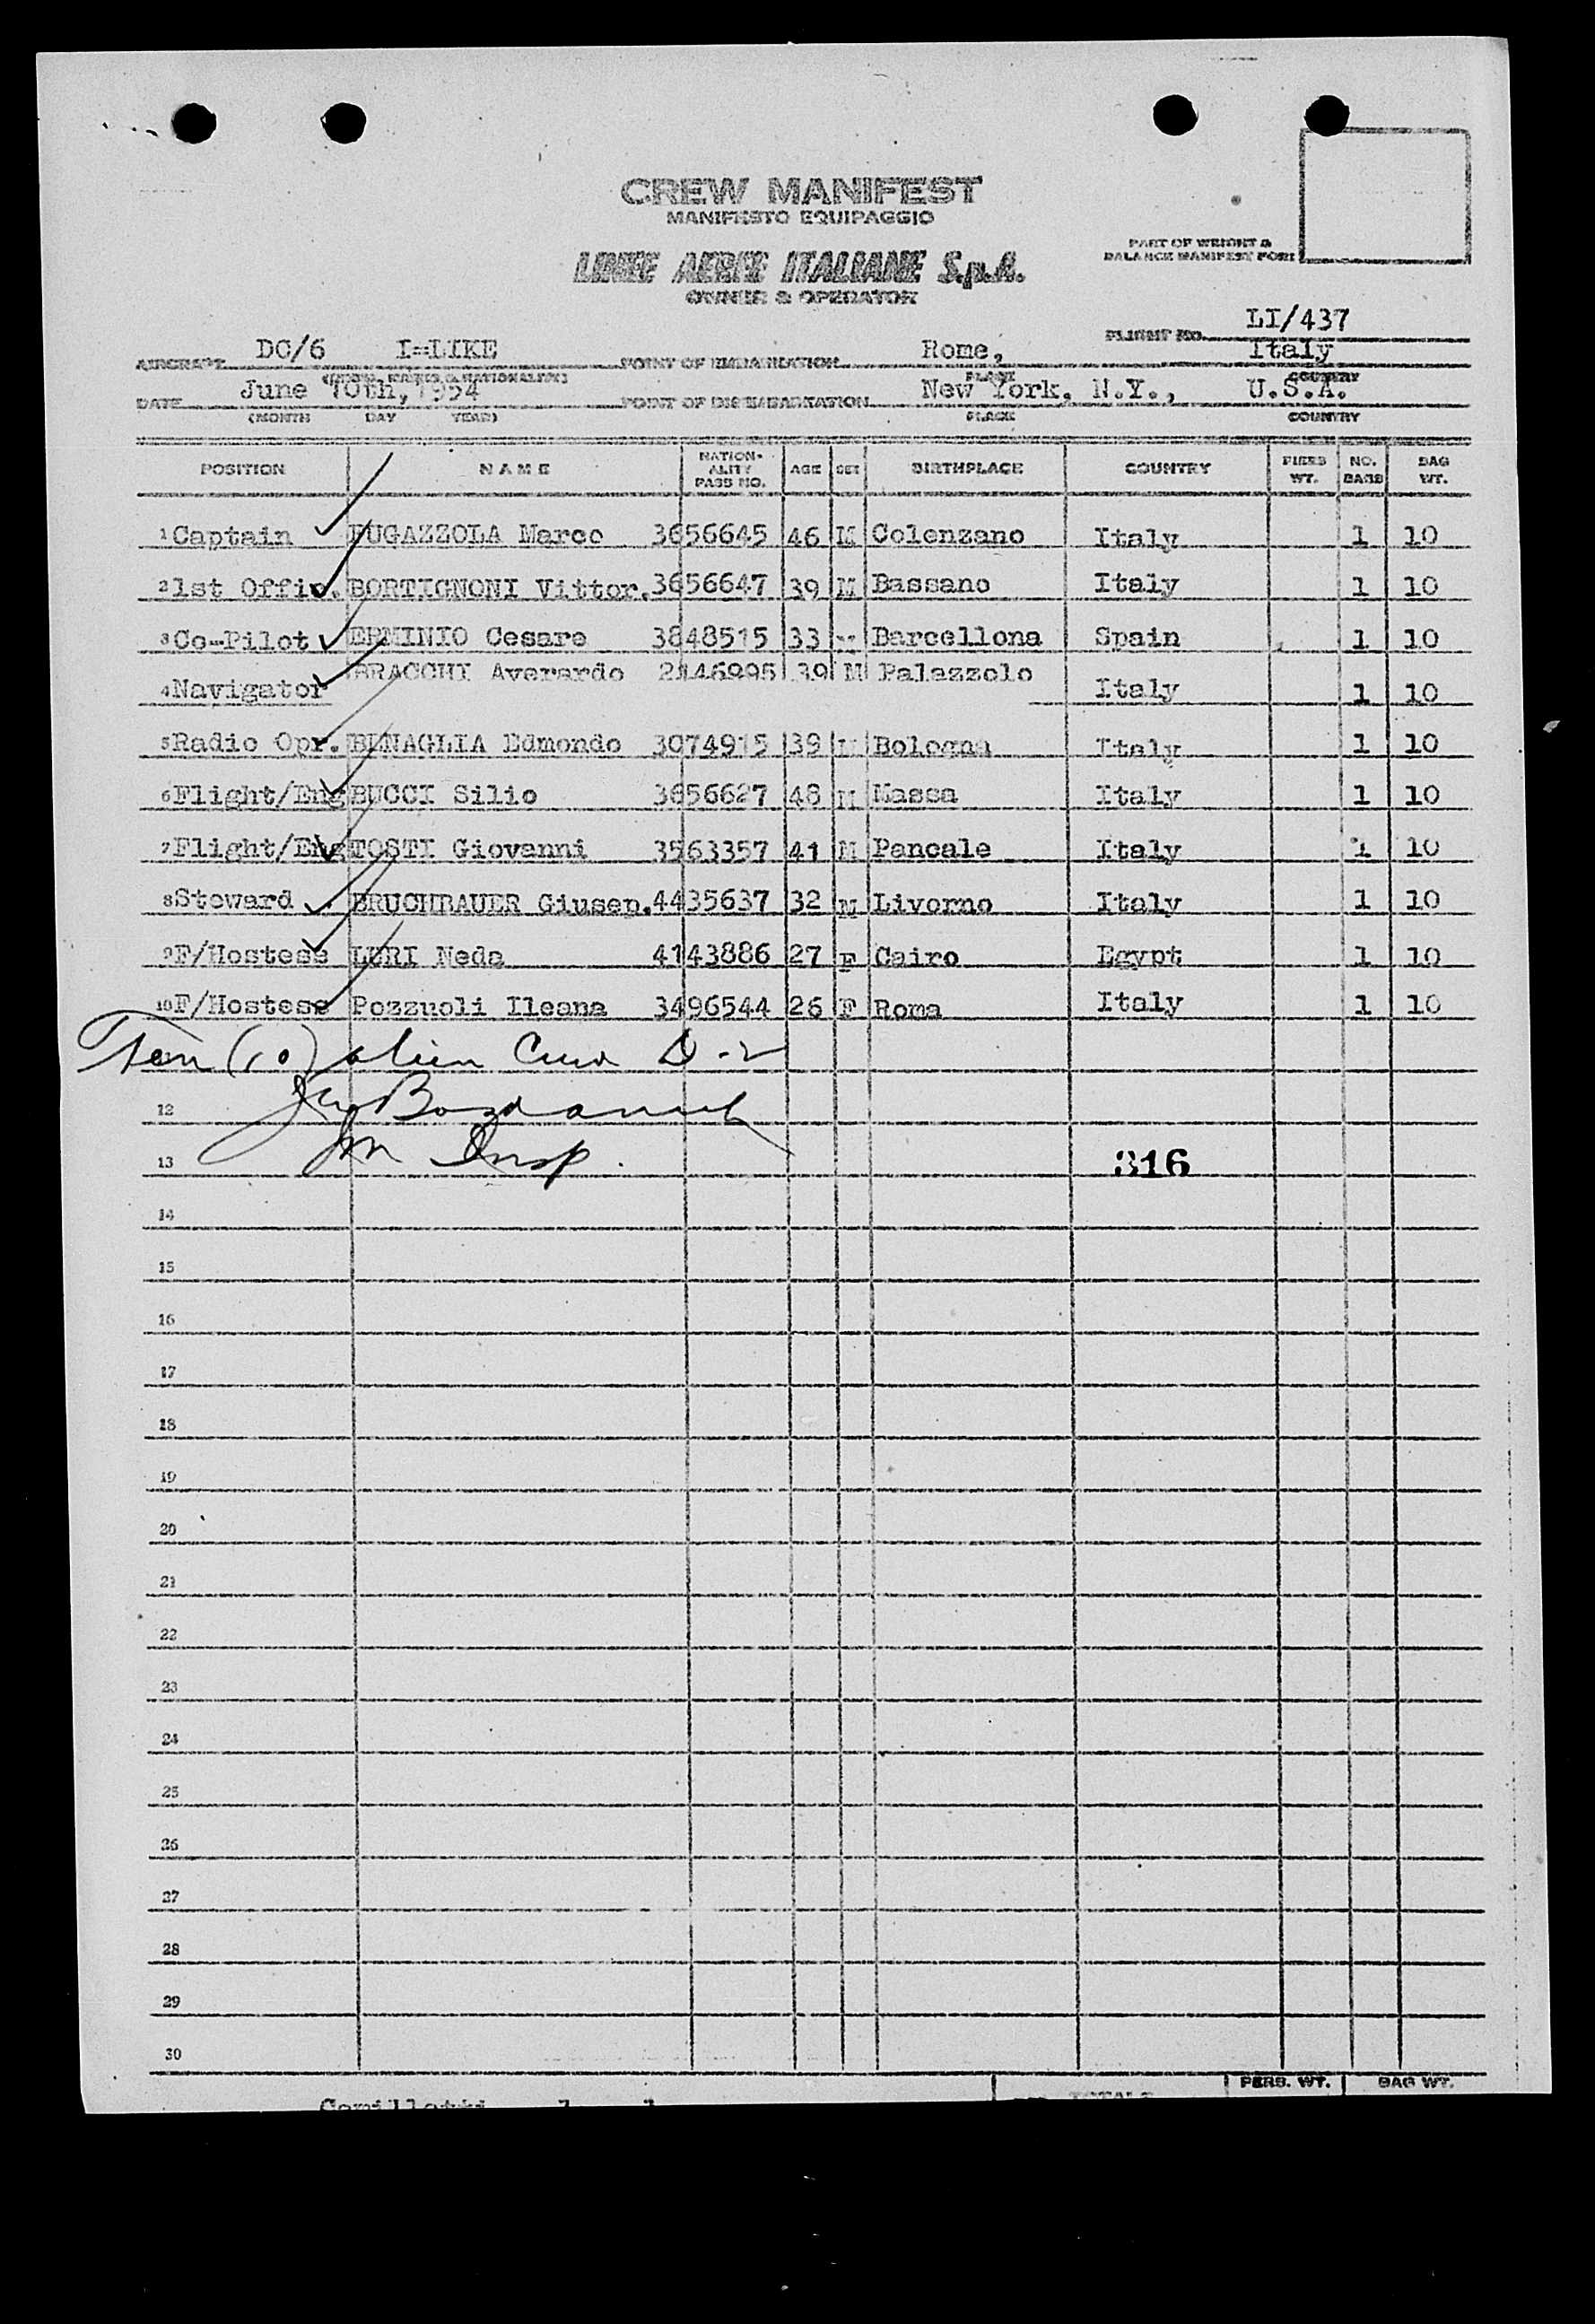 CREW MANIFEST
MANIFESTO EQUIPAGGIO
LINEE AEREE ITALIANE S.p.A.
OWNER & OPERATOR
PART OF WEIGHT &
BALANCE MANIFEST FORM
FLIGHT NO. LI/437
AIRCRAFT DC/6 I=LIKE POINT OF EMBARKATION Rome, Italy
PLACE COUNTRY
DATE June 10th, 1954 POINT OF DISEMBARKATION New York, N.Y., U.S.A.
(MONTH DAY YEAR) PLACE COUNTRY
POSITION NAME NATION-ALITY PASS NO. AGE SEX BIRTHPLACE COUNTRY PERS WT. NO. BAGS BAG WT.
1 Captain FUGAZZOLA Marco 3656645 46 M Colenzano Italy 1 10
2 1st Offic. BORTIGNONI Vittor. 3656647 39 M Bassano Italy 1 10
3 Co-Pilot ERMINIO Cesare 3848515 33 M Barcellona Spain 1 10
4 Navigator BRACCHI Averardo 2146995 39 M Palazzolo Italy 1 10
5 Radio Opr. BENAGLIA Edmondo 3074915 39 M Bologna Italy 1 10
6 Flight/Eng BUCCI Silio 3656627 48 M Massa Italy 1 10
7 Flight/Eng TOSTI Giovanni 3563357 41 M Pancale Italy 1 10
8 Steward BRUCHBAUER Giusep. 4435637 32 M Livorno Italy 1 10
9 F/Hostess LURI Neda 4143886 27 F Cairo Egypt 1 10
10 F/Hostess Pozzuoli Ileana 3496544 26 F Roma Italy 1 10
Ten (10) alien Crew D-2
12
Im Insp.
13 316
14
15
16
17
18
19
20
21
22
23
24
25
26
27
28
29
30
PERS. WT. BAG WT.
TOTALS